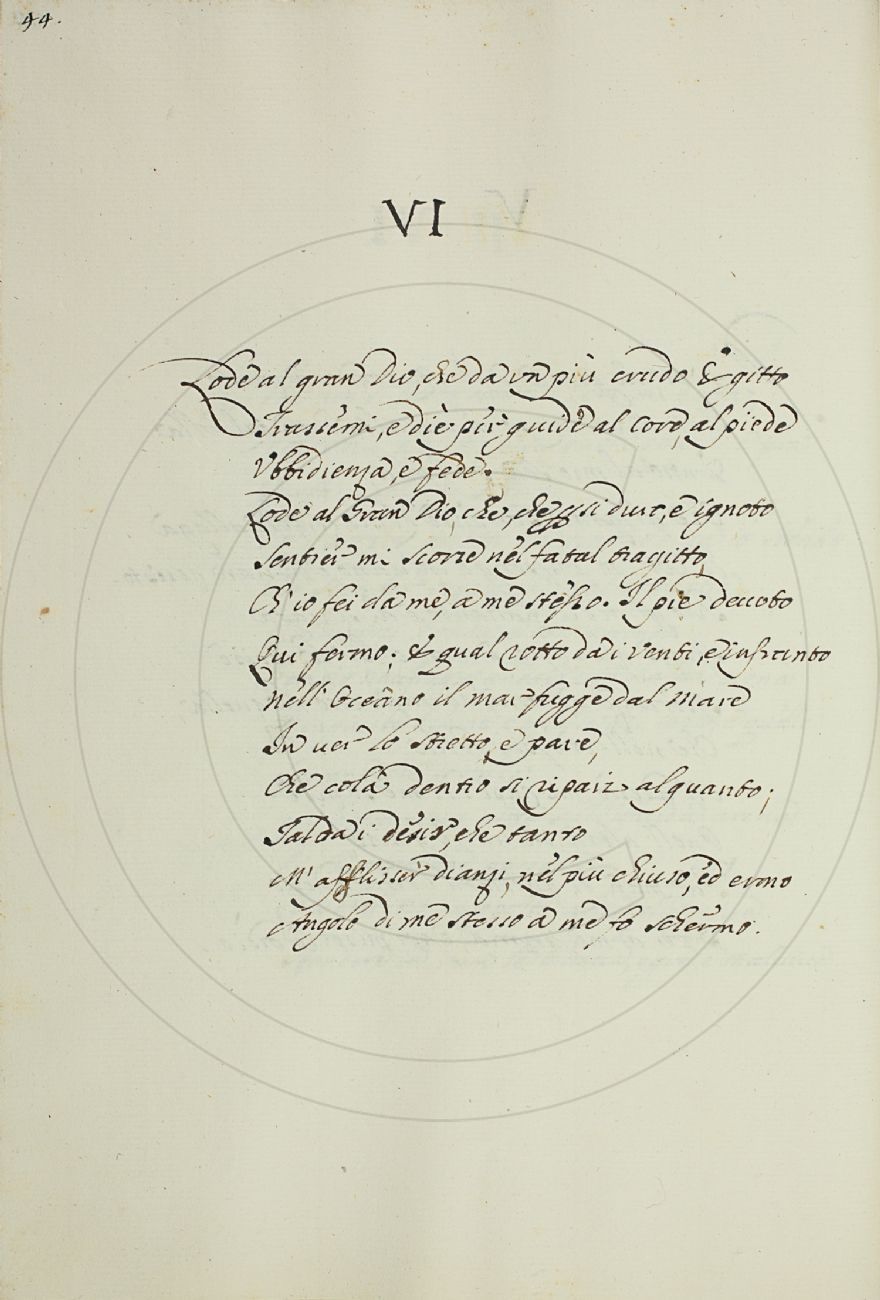 44.
VI
Lode al gran Dio, che da vn più crudo Egitto
Trassemi, e diè per guide al core, al piede
Vbbidienza, e fede.
Lode al Gran Dio, che, che si dure, e ignoto
Sentier mi scorse nel fatal tragitto,
Ch' io fei da me, a me stesso. Il piè deuoto
Qui fermo; E qual rotto da i venti, e infranto
Nell' Oceano il mar fugge dal Mare
In uer lo stretto, e pare,
Che colà dentro si ripari alquanto;
Tal da i desir, che tanto
M' afflisser dianzi, nel più chiuso, ed ermo
Angolo di me stesso a me fo schermo.